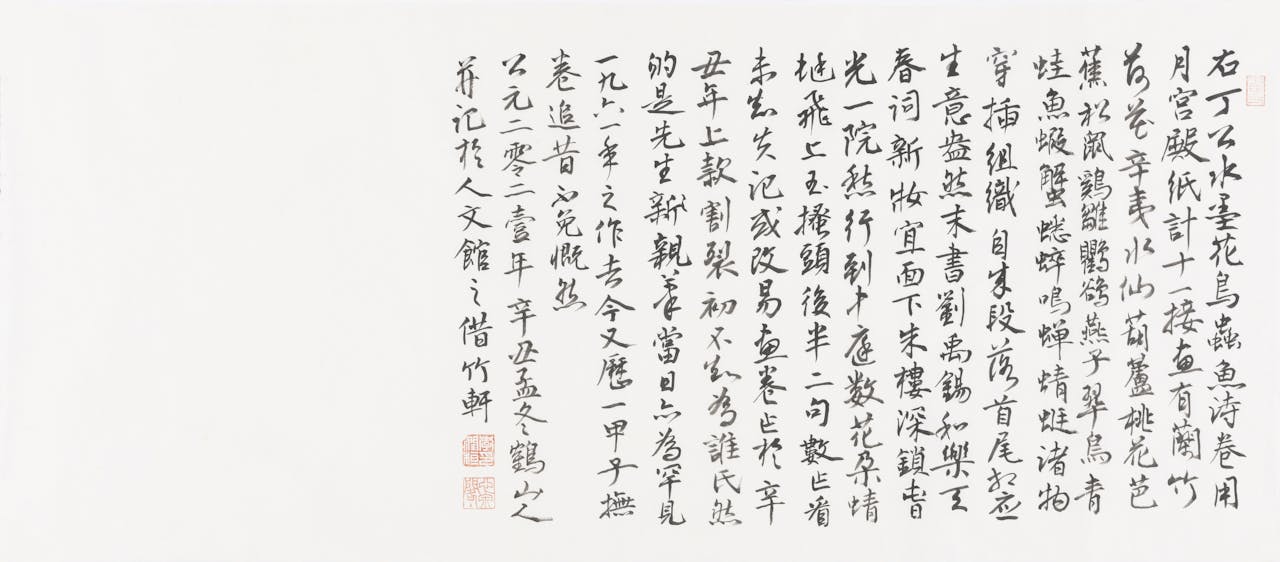 右丁公水墨花鳥蟲魚诗卷用
月宫殿紙計十一接画有蘭竹
荷花辛夷水仙葫蘆桃花芭
蕉松鼠鷄雛鸜鹆燕子翠鳥青
蛙魚蝦蟹蟋蟀鳴蝉蜻蜓诸物
穿插組織自成段落首尾相应
生意盎然末書劉禹錫和樂天
春词新妝宜面下朱樓深鎖春
光一院愁行到中庭数花朵蜻
蜓飛上玉搔頭後半二句數上看
未知失记或改易画卷作於辛
丑年上款割裂初不知為誰氏然
的是先生新親筆當日亦為罕見
一九六一年之作去今又歷一甲子撫
卷追昔不免慨然
公元二零二壹年辛丑孟冬鶴山人
并记於人文館之借竹軒